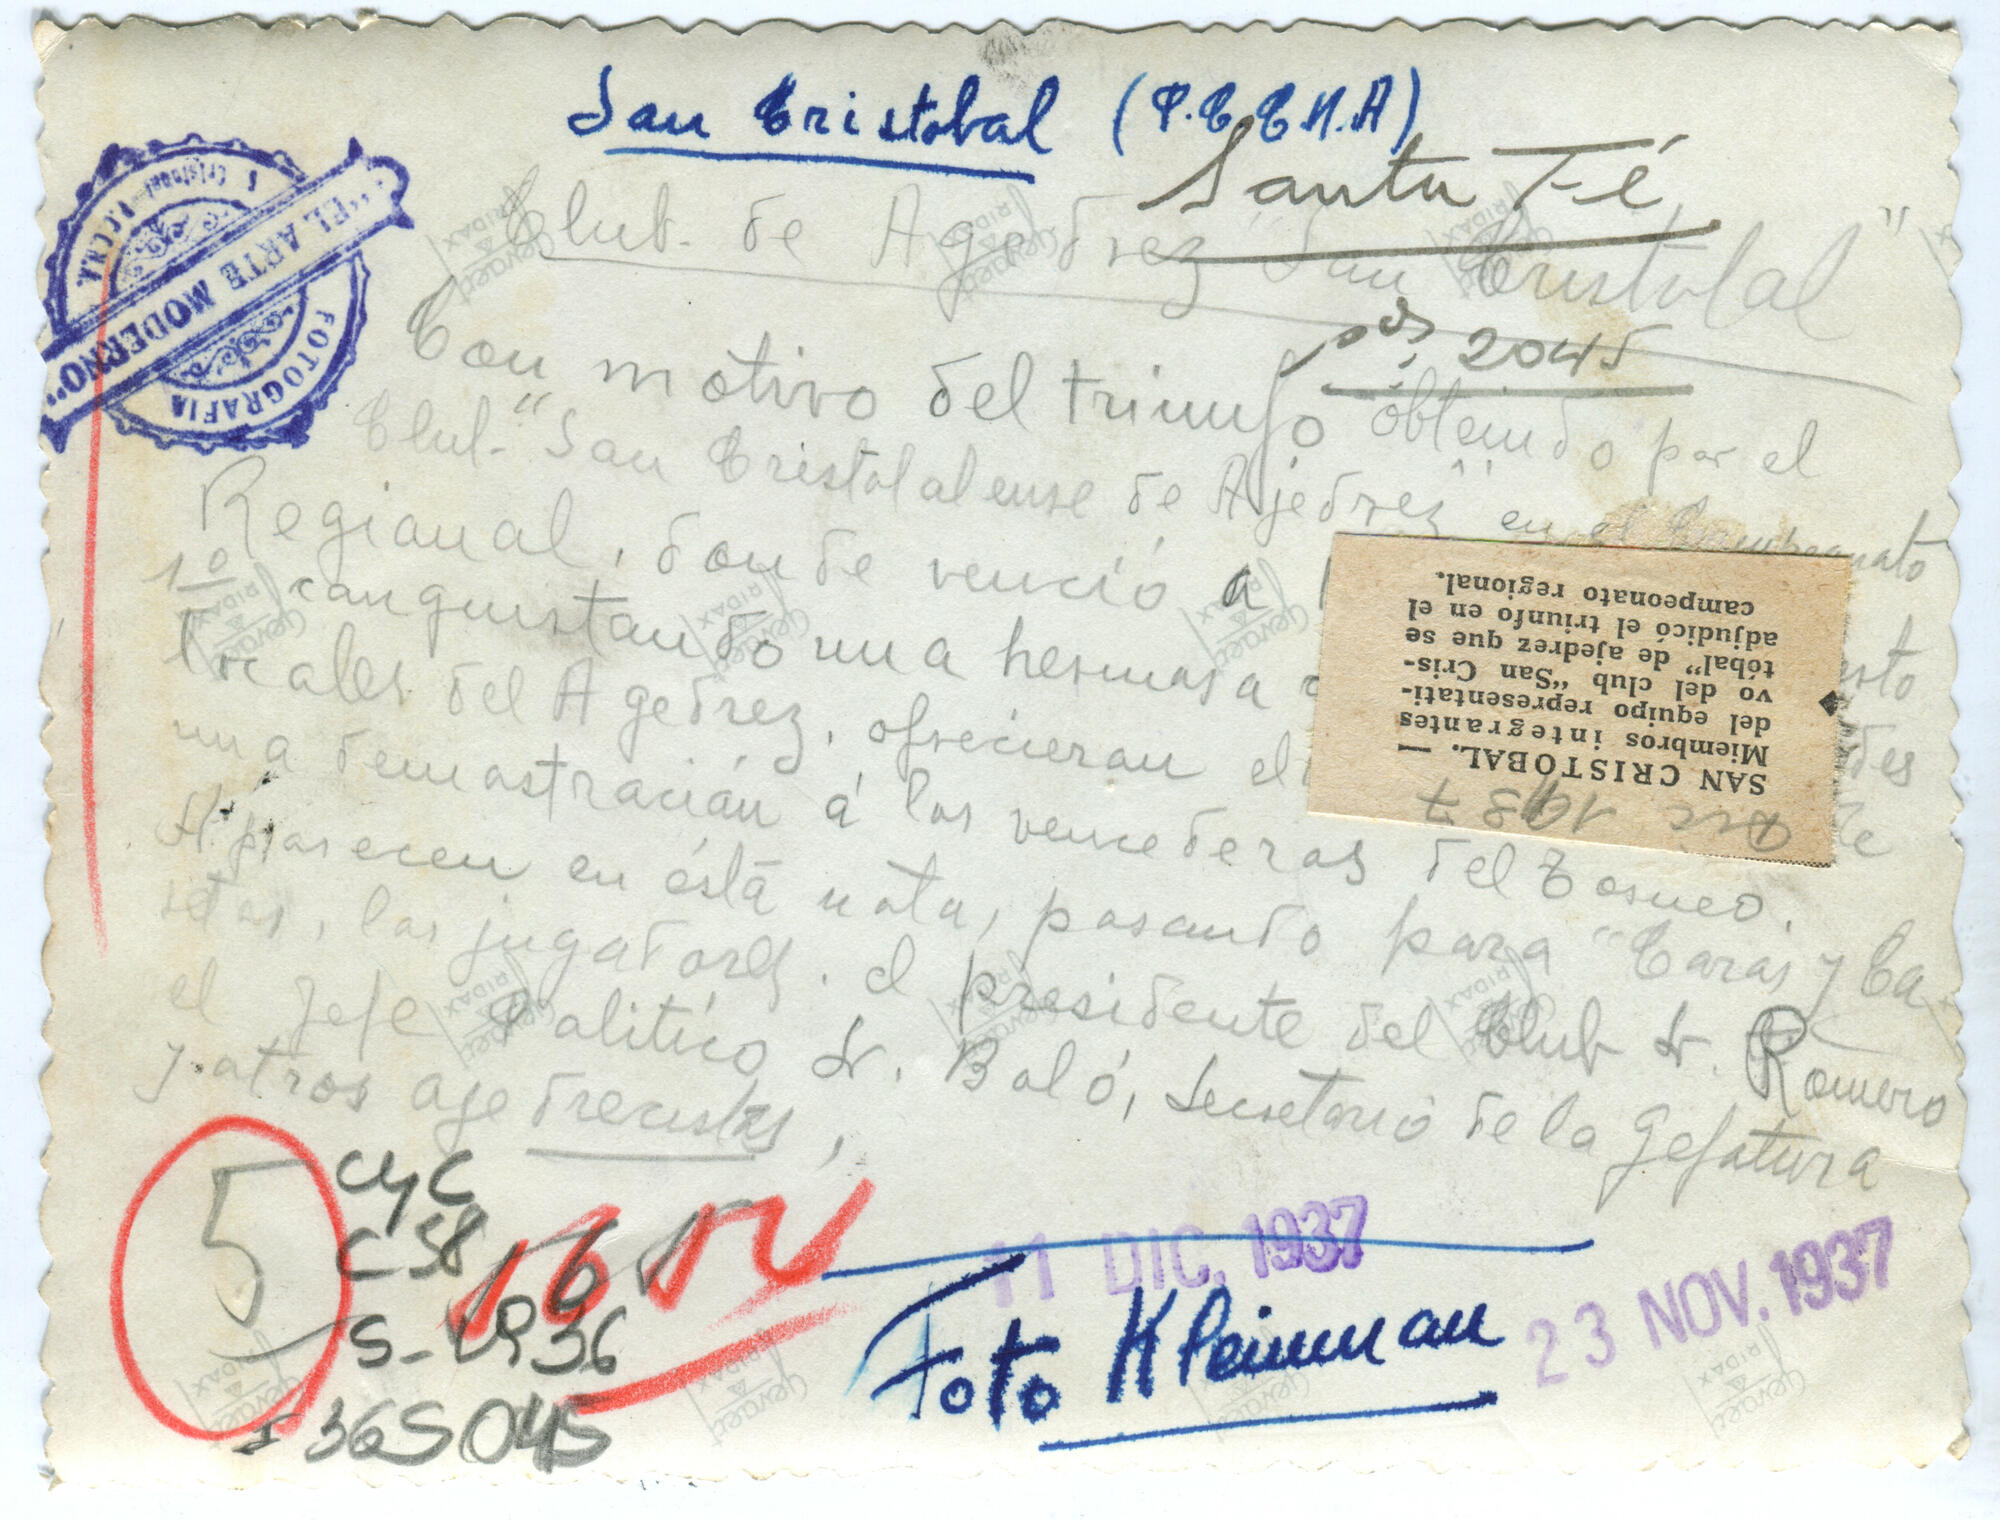 San Cristobal (F.C.C.N.A)
Santa Fé
Club de Agedrez San Cristobal"
sds, 2045
Con motivo del triunfo obteindo por el
Club "San Cristobalense de Ajedrez" en el Campeonato
Regional, donde venció a
1º conquistando una hermosa
locales del Agedrez, ofrecieran el
una demostración á los vencederas del Torneo.
Aparecen en ésta nota, posando para "Caras y Ca
retas, los jugadores. el presidente del Club Sr. Romero
el Jefe Político Sr. Baló, Secretario de la Gefatura
y otros agedrecistas,
"EL ARTE MODERNO"
FOTOGRAFIA
S. Cristobal F.C.C.N.A.
SAN CRISTOBAL. —
Miembros integrantes
del equipo representati-
vo del club "San Cris-
tóbal" de ajedrez que se
adjudicó el triunfo en el
campeonato regional.
Dic 1937
5
CyC
C 58
S-
36S045
11 DIC. 1937
23 NOV. 1937
Foto Kleinman
Gevaert
RIDAX